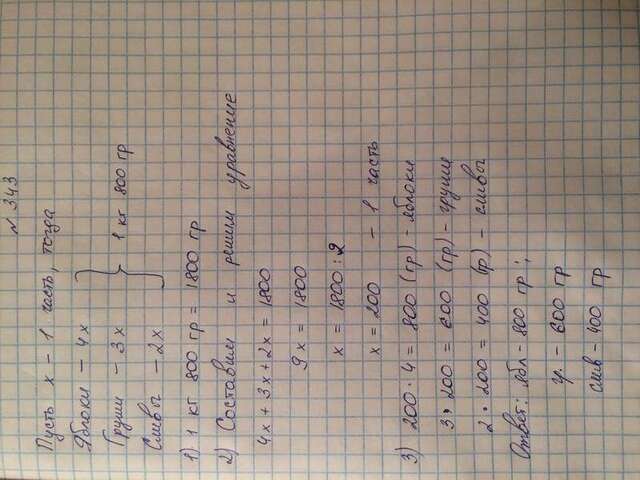 № 343
Пусть x - 1 часть, тогда
Яблоки - 4x
Груши - 3x
Сливы - 2x
1 кг 800 гр
1) 1 кг 800 гр = 1800 гр
2) Составим и решим уравнение
4x + 3x + 2x = 1800
9x = 1800
x = 1800 : 9
x = 200 - 1 часть
3) 200 · 4 = 800 (гр) - яблоки
3 · 200 = 600 (гр) - груши
2 · 200 = 400 (гр) - сливы
Ответ: ябл - 800 гр;
гр. - 600 гр
слив - 400 гр